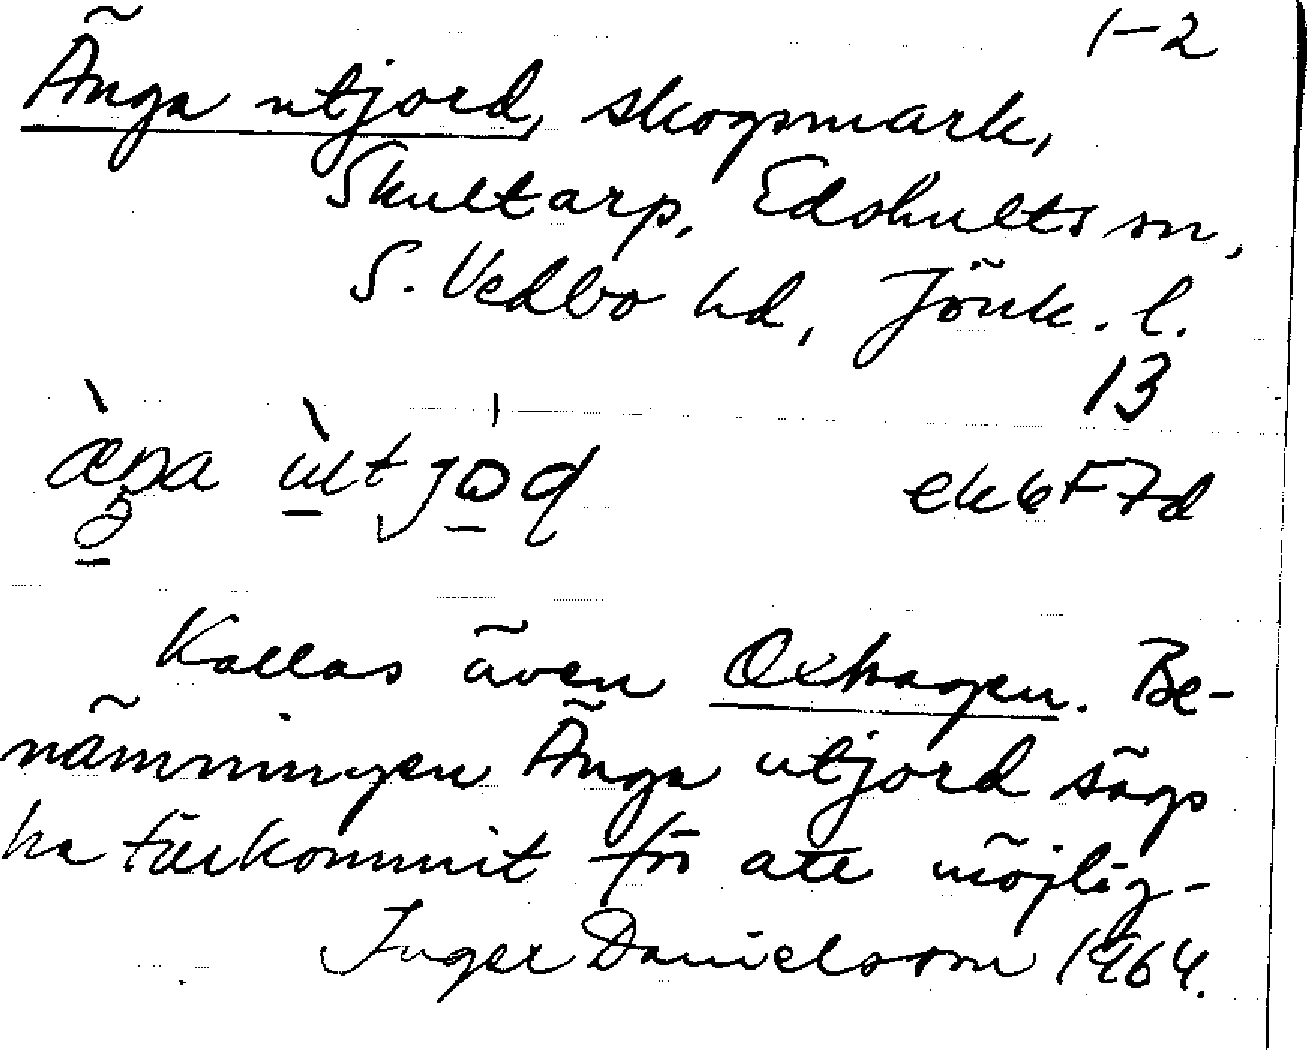 1-2
Änga utjord, skogsmark,
Skultarp, Edshults sn,
S. Vedbo hd, Jönk. l.
13
ekbF7d
Kallas även Oxhagen. Be-
nämningen Änga utjord sägs
ha tillkommit för att möjlig-
Inger Danielsson 1964.